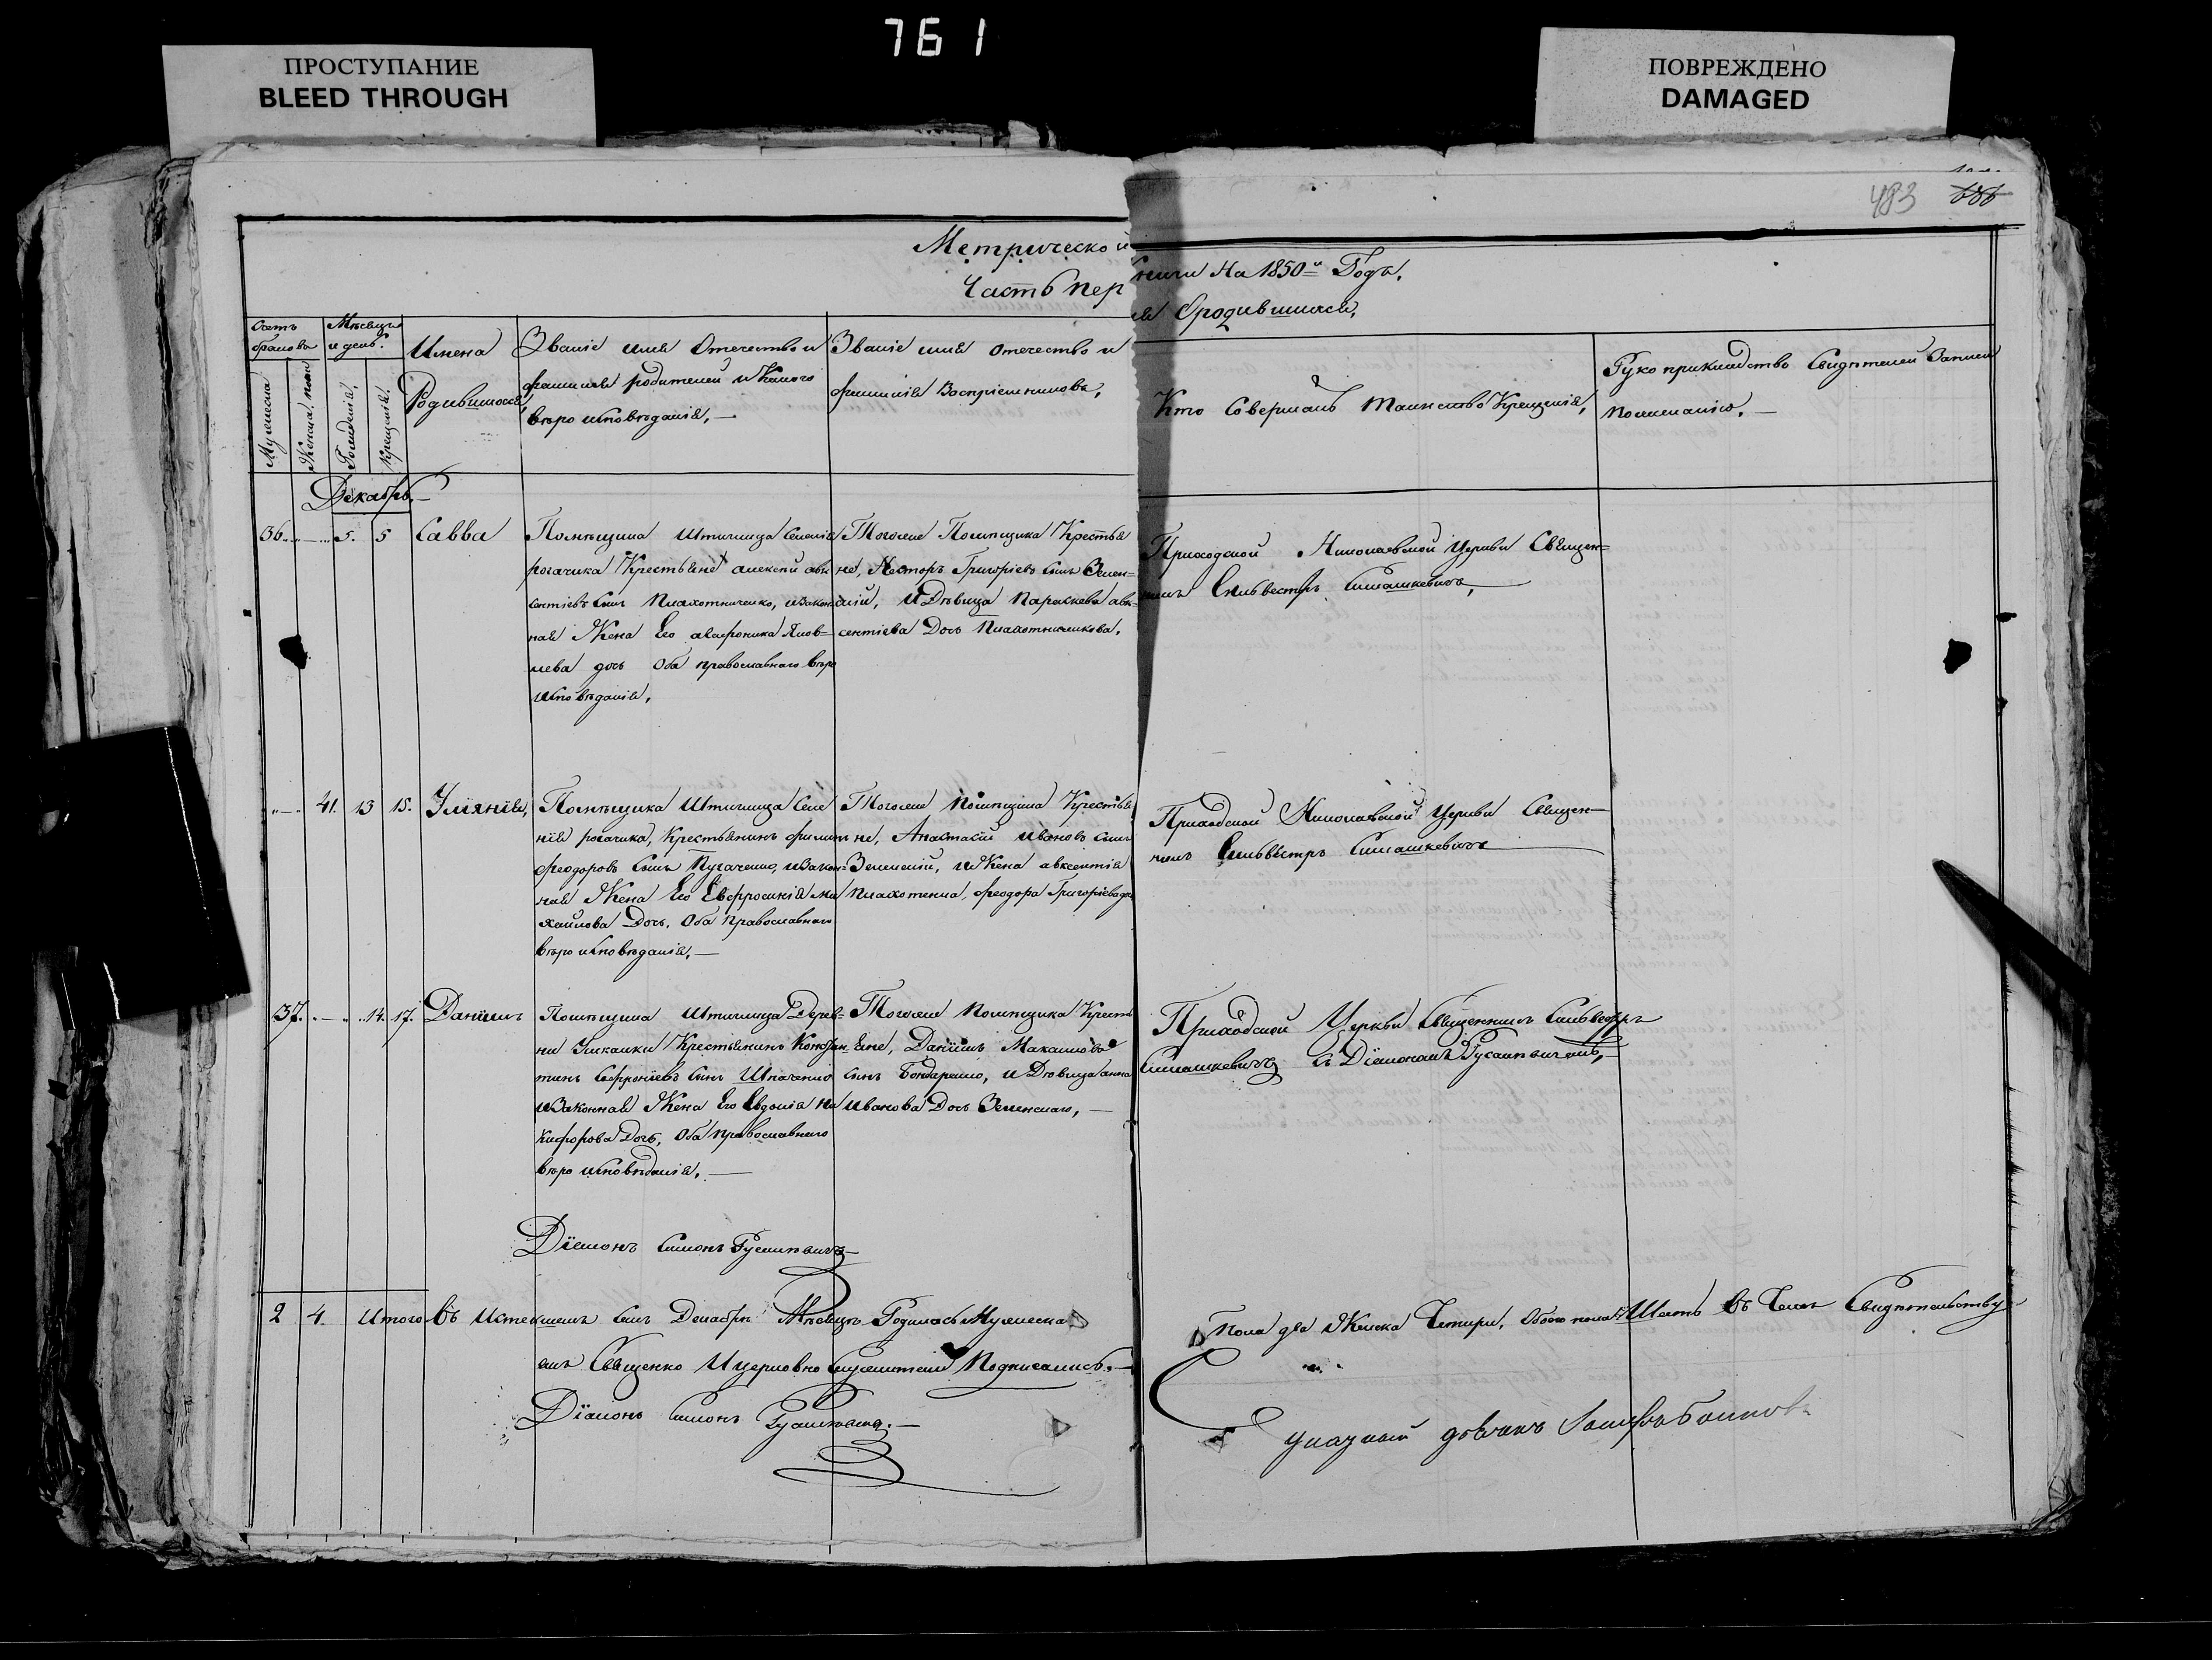 761
ПРОСТУПАНИЕ
BLEED THROUGH
ПОВРЕЖДЕНО
DAMAGED
483
Метрической книги На 1850й Годъ.
Часть пер
Мѣсяцъ
и день.
Имена
Родившихся
Званіе имя Отечество и
фамилія родителей и Какого
вѣроисповѣданія,—
Званіе имя отечество и
фамилія Воспріемниковъ,
Кто Совершалъ таинство Крещенія,
Рукоприкладство Свидѣтелей Записи
по желанію.—
Мужеска
Женска пола
Рожденія
Крещенія
Декабрь.—
36. 5. 5 Савва
Помѣщика Штиглица Селенія
рогачика Крестьянe алексѣй авк
сентіевъ сынъ Плахотниченко, изакон
ная Жена Его
дочь Оба православнаго вѣро
исповѣданія,
Тогоже Помѣщика Крестья
не, Несторъ Григорьевъ сынъ Зелен=
скій, и Дѣвица Параскева авк=
сентіева Дочь Плахотниченкова,
Приходской Николаевской Церкви Священ=
никъ Сильвестръ Симашкевичъ,
41. 13 15. Уліянія,
Помѣщика Штиглица Селе
нія рогачика, Крестьянинъ филипъ
феодоровъ сынъ Пугаченко, изакон=
ная Жена Его Евфросинія ми
хайлова Дочь, Оба Православнаго
вѣроисповѣданія,—
Тогоже помѣщика Крестья
не, Анастасій ивановъ сынъ
Зеленскій, и Жена авксентія
Плахотника, феодора Григорьева до
Приходской Николаевской Церкви Священ—
никъ Сильвестръ Симашкевичъ
37. 14. 17. Даніилъ
Помѣщика Штиглица Дерев=
ни Ушкалки Крестьянинъ Констан
тинъ Софроніевъ сынъ Шпаченко
изаконная Жена Его Евдокія Ни
кифорова Дочь, Оба православнаго
вѣроисповѣданія,—
Тогоже помѣщика Кресть
яне, Даніилъ Максимовъ
сынъ Бондаренко, и Дѣвица анна
иванова Дочь Зеленскаго,—
Приходской Церкви Священникъ Сильвестръ
Симашкевичъ съ Діякономъ
Діяконъ Симонъ
2 4. Итого въ истекшемъ семъ Декабрѣ Мѣсяцѣ Родилось Мужеска
пола два Женска Четыри, Обоего пола Шесть въ Чемъ Свидѣтельству=
емъ Священно и церковно служители Подписались.—
Діяконъ Симонъ
указный дьячекъ